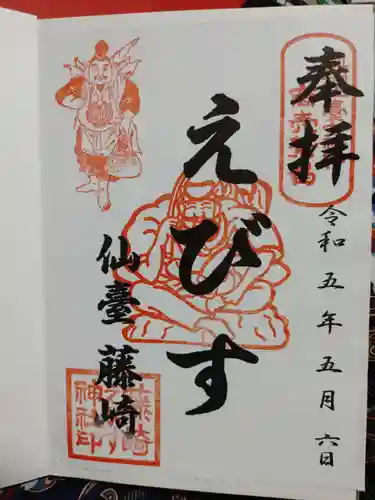 奉拝
令和五年五月六日
えびす
仙臺 藤崎